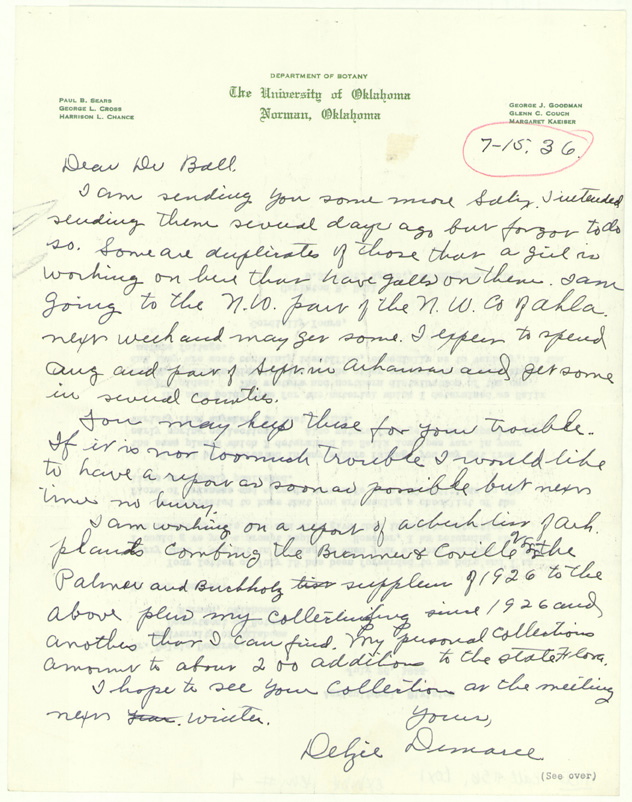 DEPARTMENT OF BOTANY
The University of Oklahoma
Norman, Oklahoma
PAUL B. SEARS
GEORGE L. CROSS
HARRISON L. CHANCE
GEORGE J. GOODMAN
GLENN C. COUCH
MARGARET KAEISER
7-15. 36.
Dear Dr Ball.
I am sending you some more Salix. I intended
sending them several days ago but forgot to do
so. Some are duplicates of those that a girl is
working on here that have galls on them. I am
going to the N.W. part of the N.W. Co of Okla.
next week and may get some. I expect to spend
Aug and part of Sept. in Arkansas and get some
in several counties.
You may keep these for your trouble.
If it is not too much trouble I would like
to have a report as soon as possible but next
time no hurry.
I am working on a report of a check list of Ark.
plants combing the Branner & Coville of the
Palmer and Buchholz supplem of 1926 to the
above plus my collecting since 1926 and
another that I can find. My personal collections
amount to about 200 additions to the state Flora.
I hope to see your collection at the meeting
next year. winter.
Yours,
Delzie Demaree
(See over)